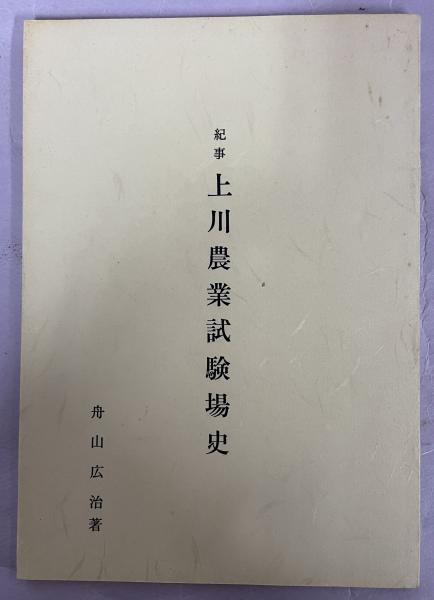 紀事
上川農業試験場史
舟山広治著